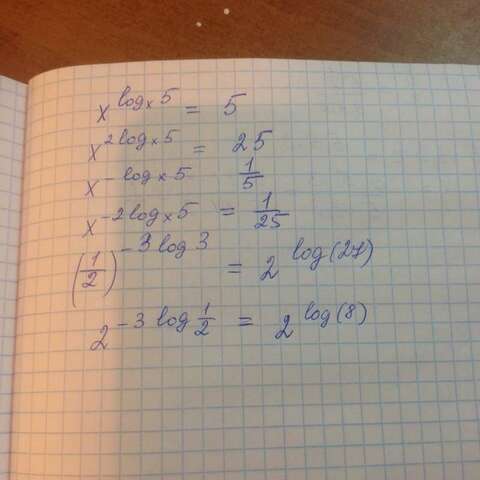 x^(logₓ5) = 5
x^(2logₓ5) = 25
x^(-logₓ5) 1/5
x^(-2logₓ5) = 1/25
(1/2)^(-3log3) = 2^(log(27))
2^(-3log1/2) = 2^(log(8))